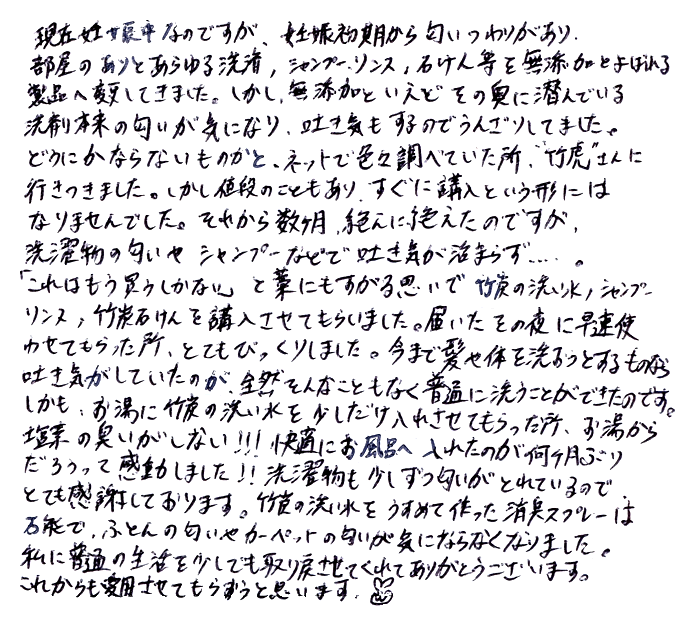 現在妊娠中なのですが、妊娠初期から匂いつわりがあり、
部屋のありとあらゆる洗濱,シャンプー、リンス,石けん等を無添加とよばれる
製品へ変更してきました。しかし、無添加といえどその奥に潜んでいる
洗剤本来の匂いが気になり、吐き気もするのでうんざりしてました。
どうにかならないものかと、ネットで色々調べていた所、"竹虎"さんに
行きつきました。しかし値段のこともあり、すぐに購入という形には
なりませんでした。それから数ヶ月、絶えに絶えたのですが、
洗濯物の匂いや シャンプーなどで吐き気が治まらず…。
「これはもう買うしかない」と藁にもすがる思いで 竹炭の洗い水,シャンプー
リンス,竹炭石けんを購入させてもらいました。届いたその夜に早速使
わせてもらった所、とてもびっくりしました。今まで髪や体を洗おうとするものなら
吐き気がしていたのが、全然そんなこともなく普通に洗うことができたのです。
しかも、お湯に竹炭の洗い水を少しだけ入れさせてもらった所、お湯から
塩素の臭いがしない!!!快適にお風呂へ入れたのが何ヶ月ぶり
だろうって感動しました!!洗濯物も少しずつ匂いがとれているので
とても感謝しております。竹炭の洗い水をうすめて作った消臭スプレーは
万能で、ふとんの匂いやカーペットの匂いが気にならなくなりました。
私に普通の生活を少しでも取り戻させてくれてありがとうございます。
これからも愛用させてもらおうと思います。